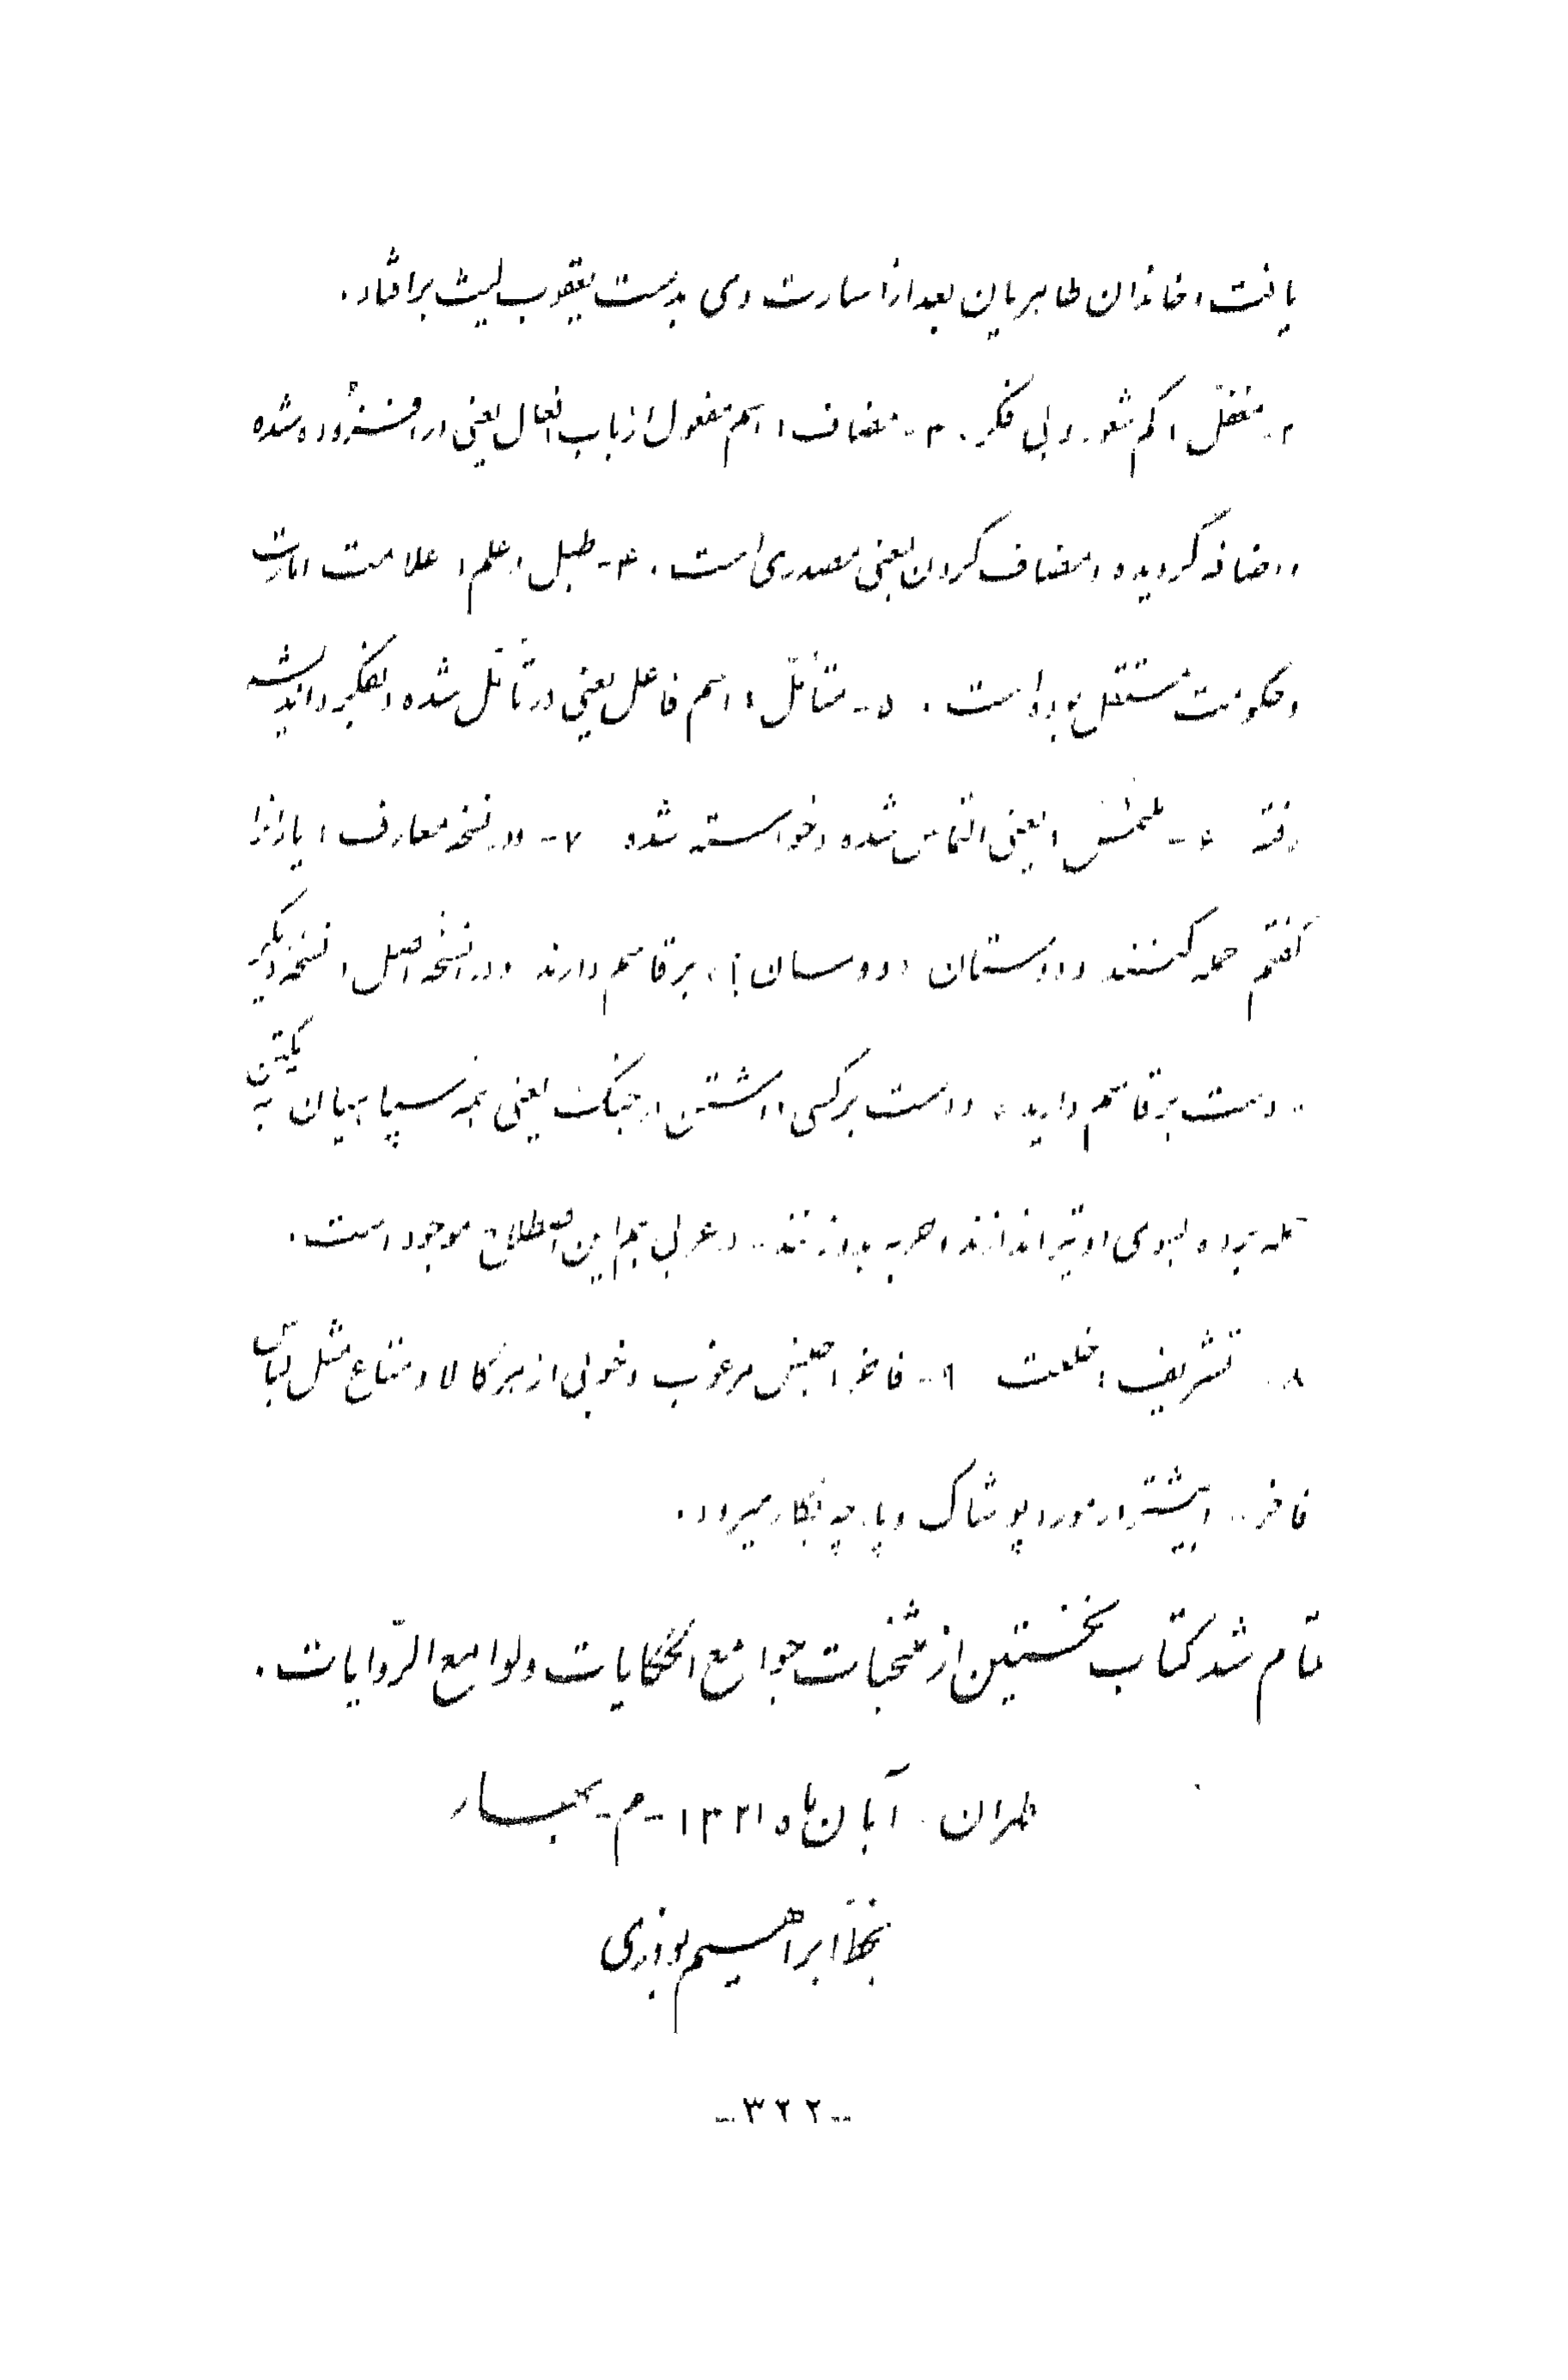 یافت و خاندان طاهریان بعد از اسارت وی بدست یعقوب لیث برافتاد.
۲- مغفّل : کم شعور و بی فکر. ۳- مضاف : اسم مفعول از باب افعال یعنی در افزوده شده
و اضافه گردیده و مضاف کردن بمعنی مصدری است. ۴- طبل و علم : علامت امارت
و حکومت مستقل بوده است. ۵- متأمّل : اسم فاعل یعنی در تأمّل شده و بفکر و اندیشه
رفته ۶- ملتمس : یعنی التماس شده و خواسته شده ۷- در نسخه معارف : یارانرا
گفتم حمله کنند و دوستان (دوسان؟) بر قاسم دارند و در نسخه اصل و نسخه دیگر
.. دست بر قاسم دارید، و دست بر کسی داشتن در جنگ یعنی همه سپاهیان به یکتن
حمله برده بسوی او تیر اندازند و حربه بدو زنند.. در عربی هم این اصطلاح موجود است.
۸- تشریف : خلعت ۹- فاخر : جنس مرغوب و خوبی از هر کالا و متاع مثل لباس
فاخر.. و بیشتر در مورد پوشاک و پارچه بکار میرود.
تمام شد کتاب نخستین از منتخبات جوامع الحکایات و لوامع الرّوایات.
طهران. آبان ماه ۱۳۲۱ - م - بهار
بخط ابراهیم بوذری
-۳۲۲-